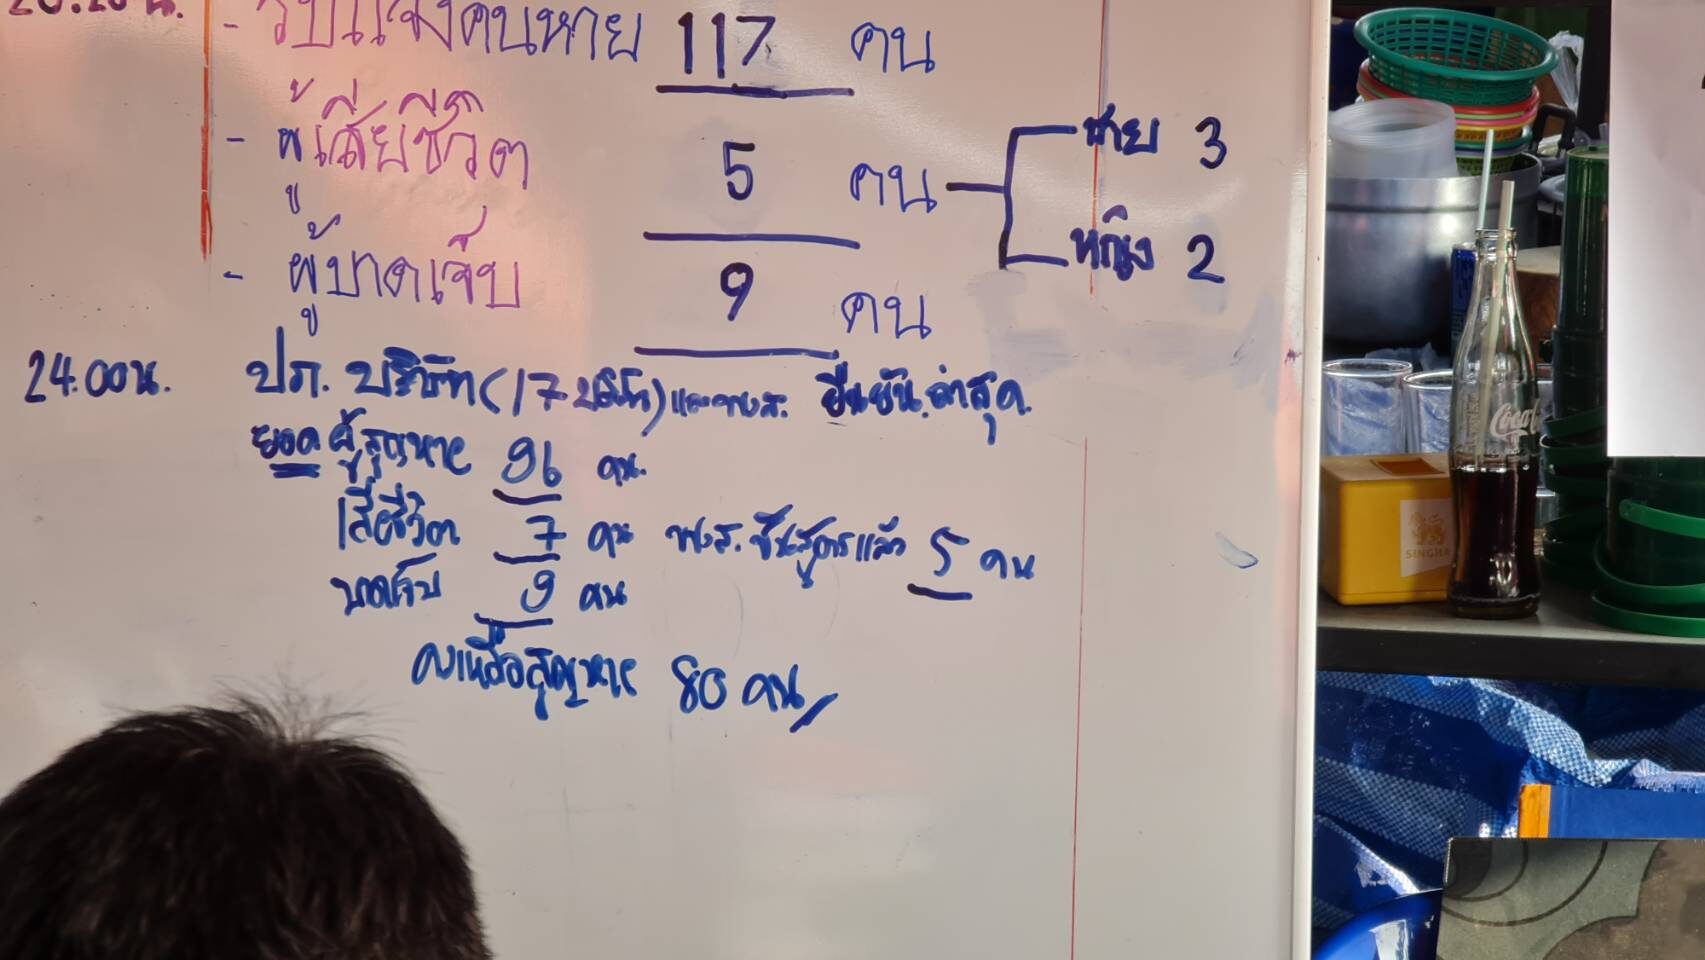 20.20 น. - รับแจ้งคนหาย 117 คน
- ผู้เสียชีวิต 5 คน
ชาย 3
หญิง 2
- ผู้บาดเจ็บ 9 คน
24.00 น. ปภ. บริษัท (17 บริษัท) และ พงส. ยืนยัน ล่าสุด.
ยอด ผู้สูญหาย 96 คน.
เสียชีวิต 7 คน พงส. ชันสูตรแล้ว 5 คน
บาดเจ็บ 9 คน
คงเหลือสูญหาย 80 คน
Coca-Cola
SINGHA